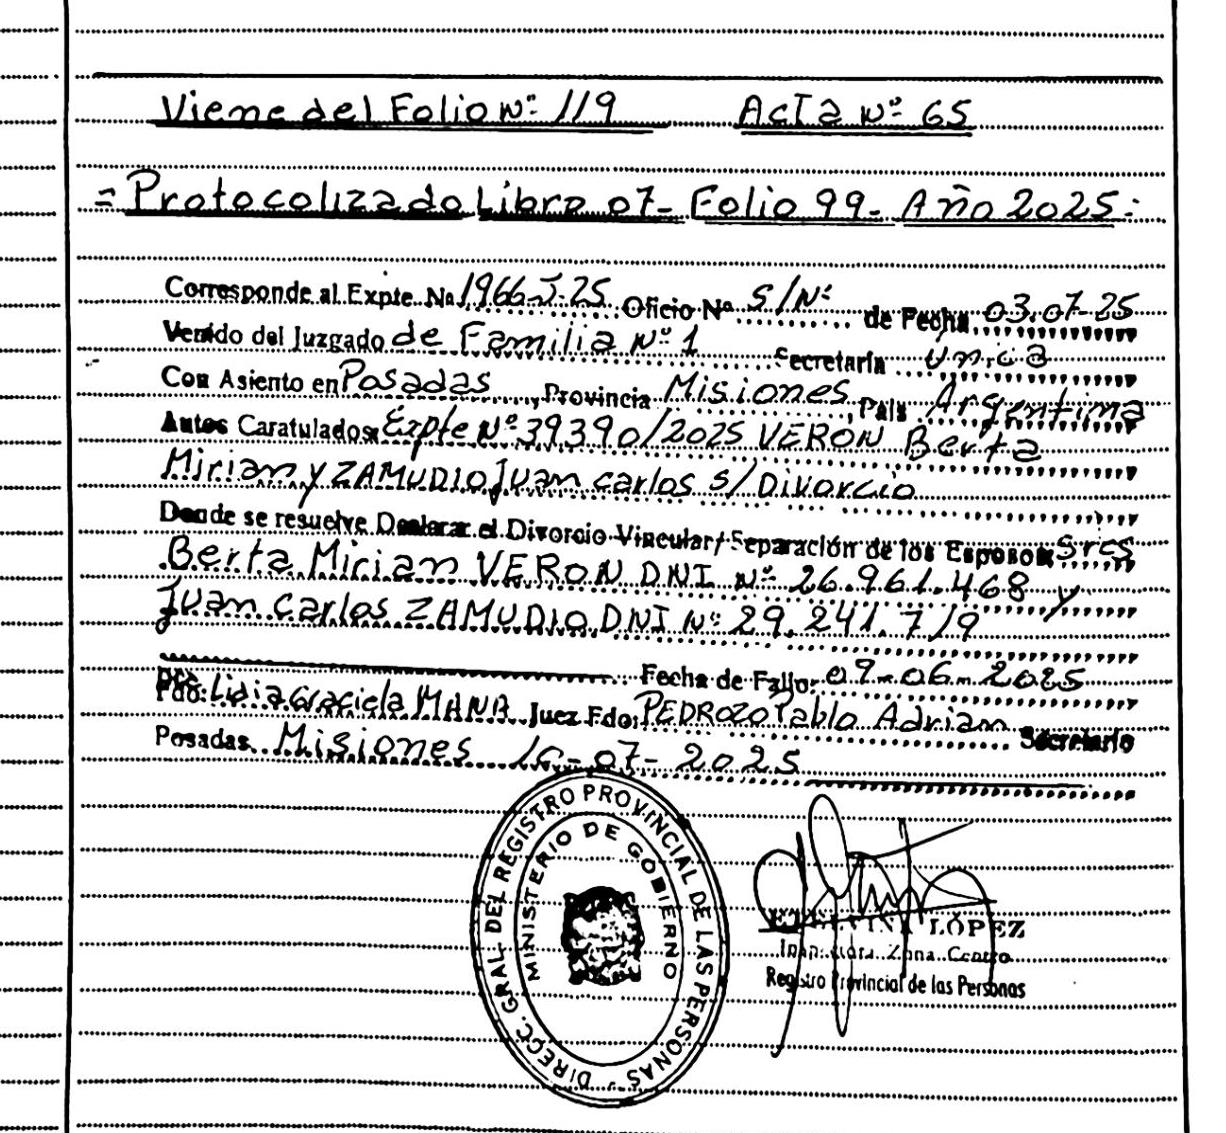 Viene del Folio Nº 119 Acta Nº 65
= Protocolizado Libro 07- Folio 99- Año 2025:
Corresponde al Expte. Nº 1966-J-25 Oficio Nº S/Nº de Fecha 03.07-25
Venido del Juzgado de Familia Nº 1 Secretaria unica
Con Asiento en Posadas, Provincia Misiones, País Argentina
Autos Caratulados: Expte Nº 39390/2025 VERON Berta
Mirian y ZAMUDIO Juan carlos s/ Divorcio
Donde se resuelve Declarar el Divorcio Vincular/Separación de los Esposos: Sres
Berta Mirian VERON DNI Nº 26.961.468 y
Juan carlos ZAMUDIO DNI Nº 29.241.719
Fecha de Fallo: 09-06-2025
Fdo: Lidia Graciela MANA Juez Fdo: PEDROZO Pablo Adrian Secretario
Posadas, Misiones 10-07-2025
DIRECC. GRAL. DEL REGISTRO PROVINCIAL DE LAS PERSONAS
MINISTERIO DE GOBIERNO
LÓPEZ
Zona Centro
Registro Provincial de las Personas